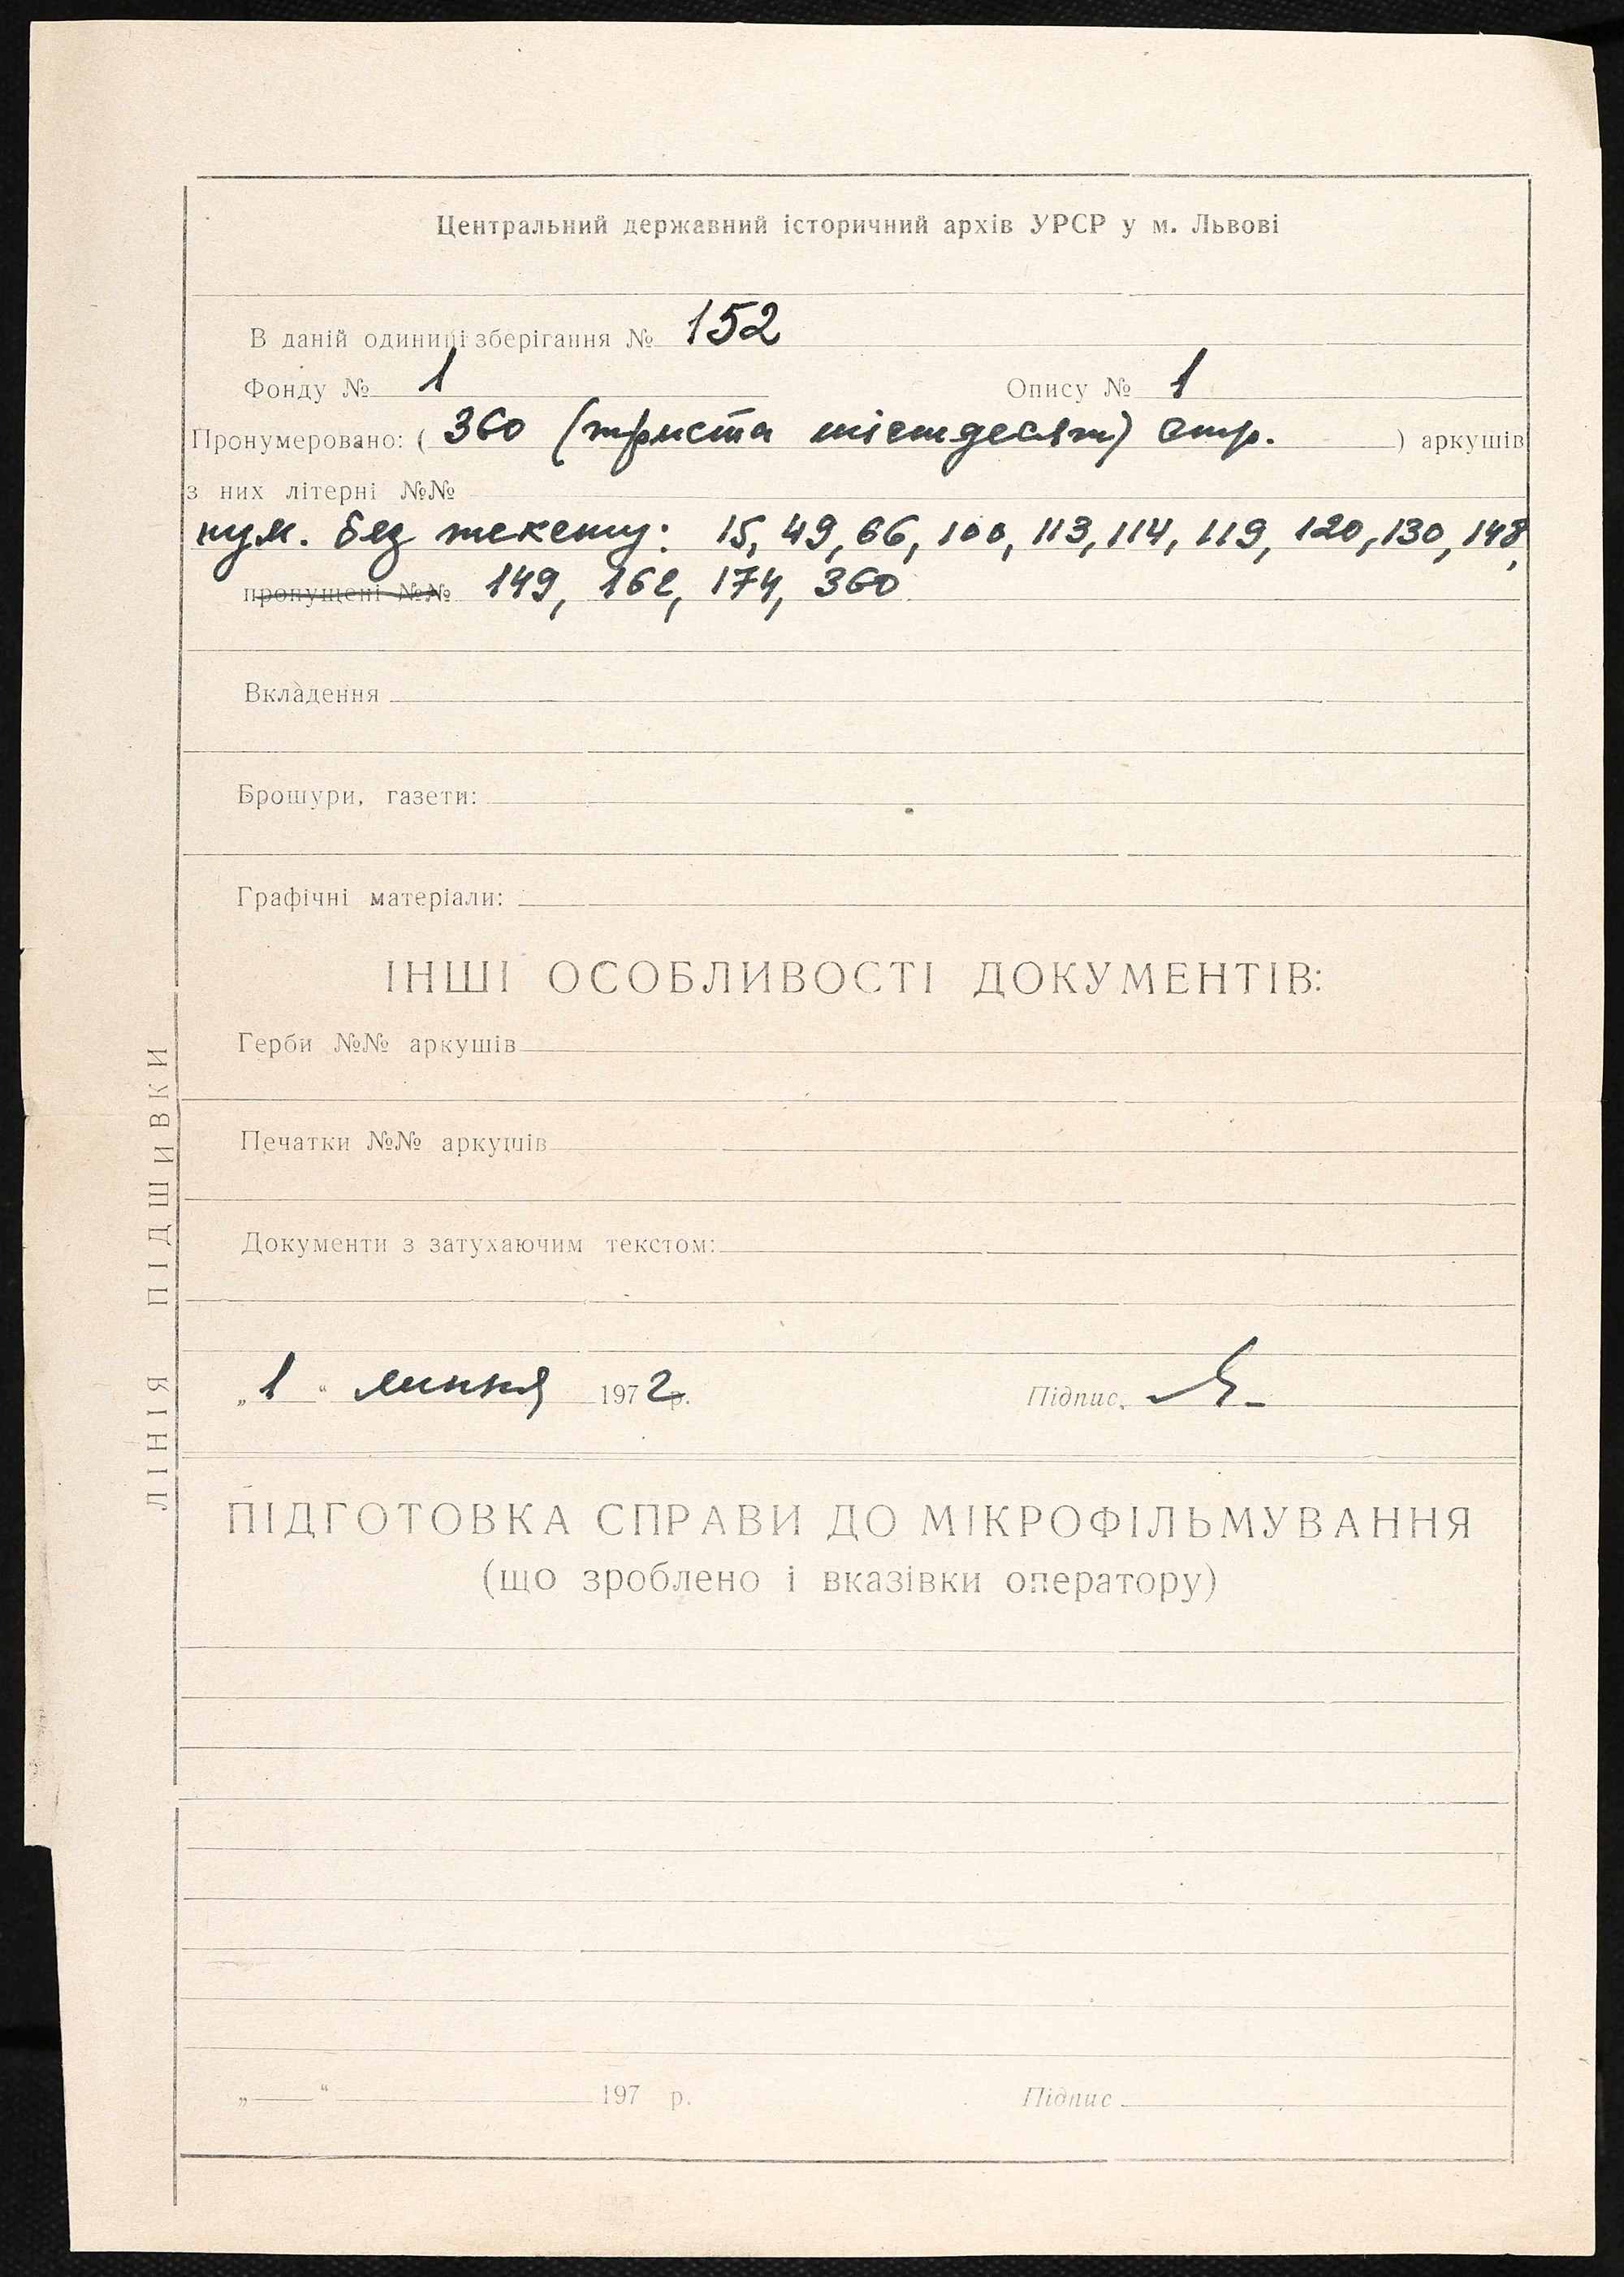 Центральний державний історичний архів УРСР у м. Львові
В даній одиниці зберігання № 152
Фонду № 1 Опису № 1
Пронумеровано: ( 360 (триста шістдесят) стр. ) аркушів
з них літерні №№
нум. без тексту: 15, 49, 66, 100, 113, 114, 119, 120, 130, 148,
пропущені №№ 149, 162, 174, 360
Вкладення
Брошури, газети:
Графічні матеріали:
ІНШІ ОСОБЛИВОСТІ ДОКУМЕНТІВ:
Герби №№ аркушів
Печатки №№ аркушів
Документи з затухаючим текстом:
„1“ липня 1972р. Підпис.
ПІДГОТОВКА СПРАВИ ДО МІКРОФІЛЬМУВАННЯ
(що зроблено і вказівки оператору)
„ “ 197 р. Підпис
ЛІНІЯ ПІДШИВКИ